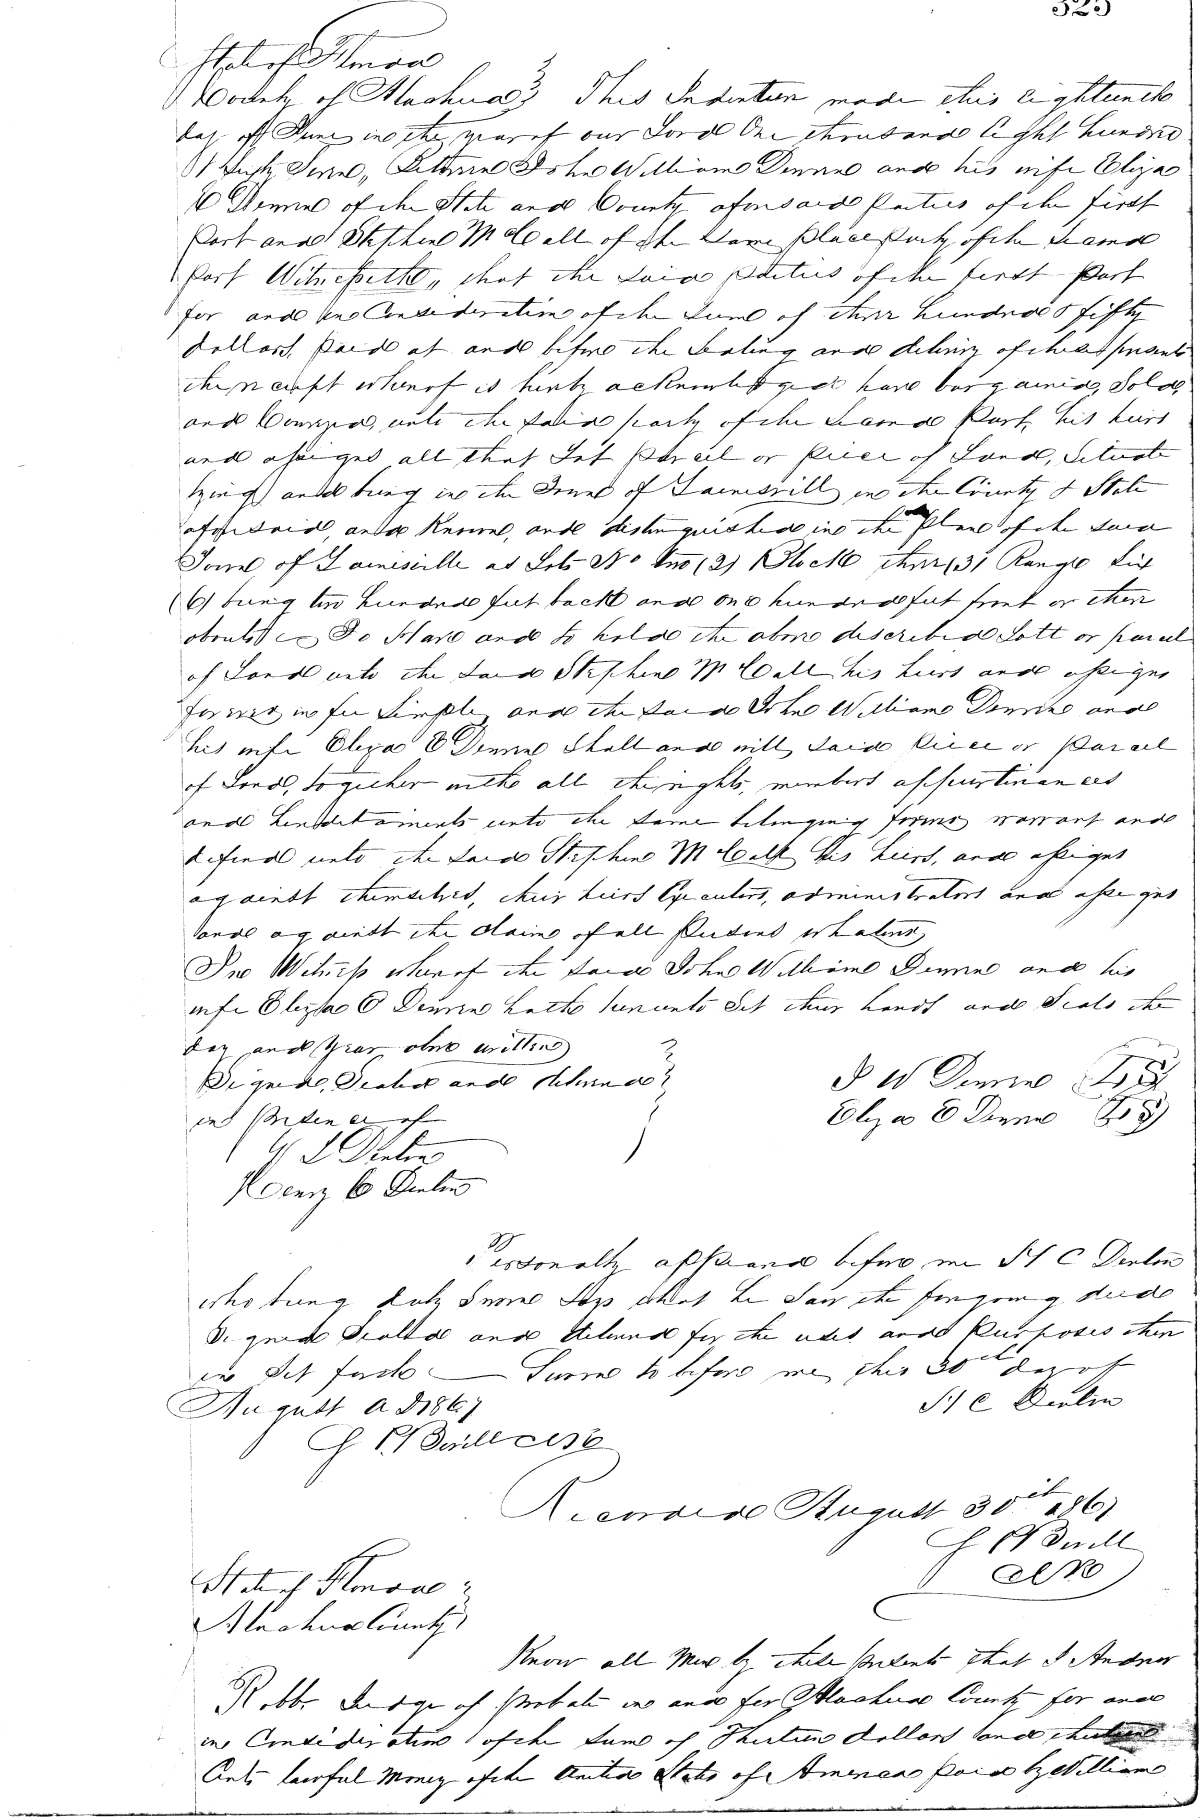 525
State of Florida
County of Alachua } This Indenture made this eighteenth
day of June in the year of our Lord One thousand Eight hundred
& Sixty Seven,, Between John William Dennine and his wife Eliza
C Dennine of the State and County aforesaid Parties of the first
Part and Stephen McCall of the Same Place Party of the Second
Part Witnesseth,, that the said parties of the first Part
for and in Consideration of the Sum of three hundred & fifty
dollars, Paid at and before the Sealing and delivery of these presents
the receipt whereof is hereby acknowledged have bargained, Sold,
and Conveyed, unto the said party of the Second Part, his heirs
and assigns all that Lot parcel or Piece of Land, Situate
lying and being in the Town of Gainesvill, in the County & State
aforesaid, and Known, and distinguished in the Plan of the said
Town of Gainesville as Lots No two (2) Block three (3) Range Six
(6) being two hundred feet back and one hundred feet front or there
abouts To Have and to hold the above described Lott or parcel
of Land unto the said Stephen McCall his heirs and assigns
forever in fee Simple, and the said John William Dennine and
his wife Eliza C Dennine Shall and will, Said Piece or Parcel
of Land, together with all the rights, members appurtinances
and Hereditaments unto the same belonging forever warrant and
defend unto the said Stephen McCall his heirs, and assigns
against themselves, their heirs Executors, administrators and assigns
and against the claim of all Persons whatever,
In Witness whereof the said John William Dennine and his
wife Eliza C Dennine hath hereunto Set their hands and Seals the
day and Year above written
Signed, Sealed and delivered } J W Dennine
in presence of Eliza C Dennine
L Denton
Henry C Denton
Personally appeared before me H C Denton
who being duly Sworn Says that he Saw the foregoing deed
Signed Sealed and delivered for the uses and Purposes there
in Set forth Sworn to before me, this 30th day of
August A D 1867 H C Denton
Clk
Recorded August 30th 1867
Clk
State of Florida
Alachua County }
Know all Men by these presents that I Andrew
Robb. Judge of Probate in and for Alachua County for and
in Consideration of the Sum of Thirteen dollars and
Cents lawful Money of the United States of America paid by William